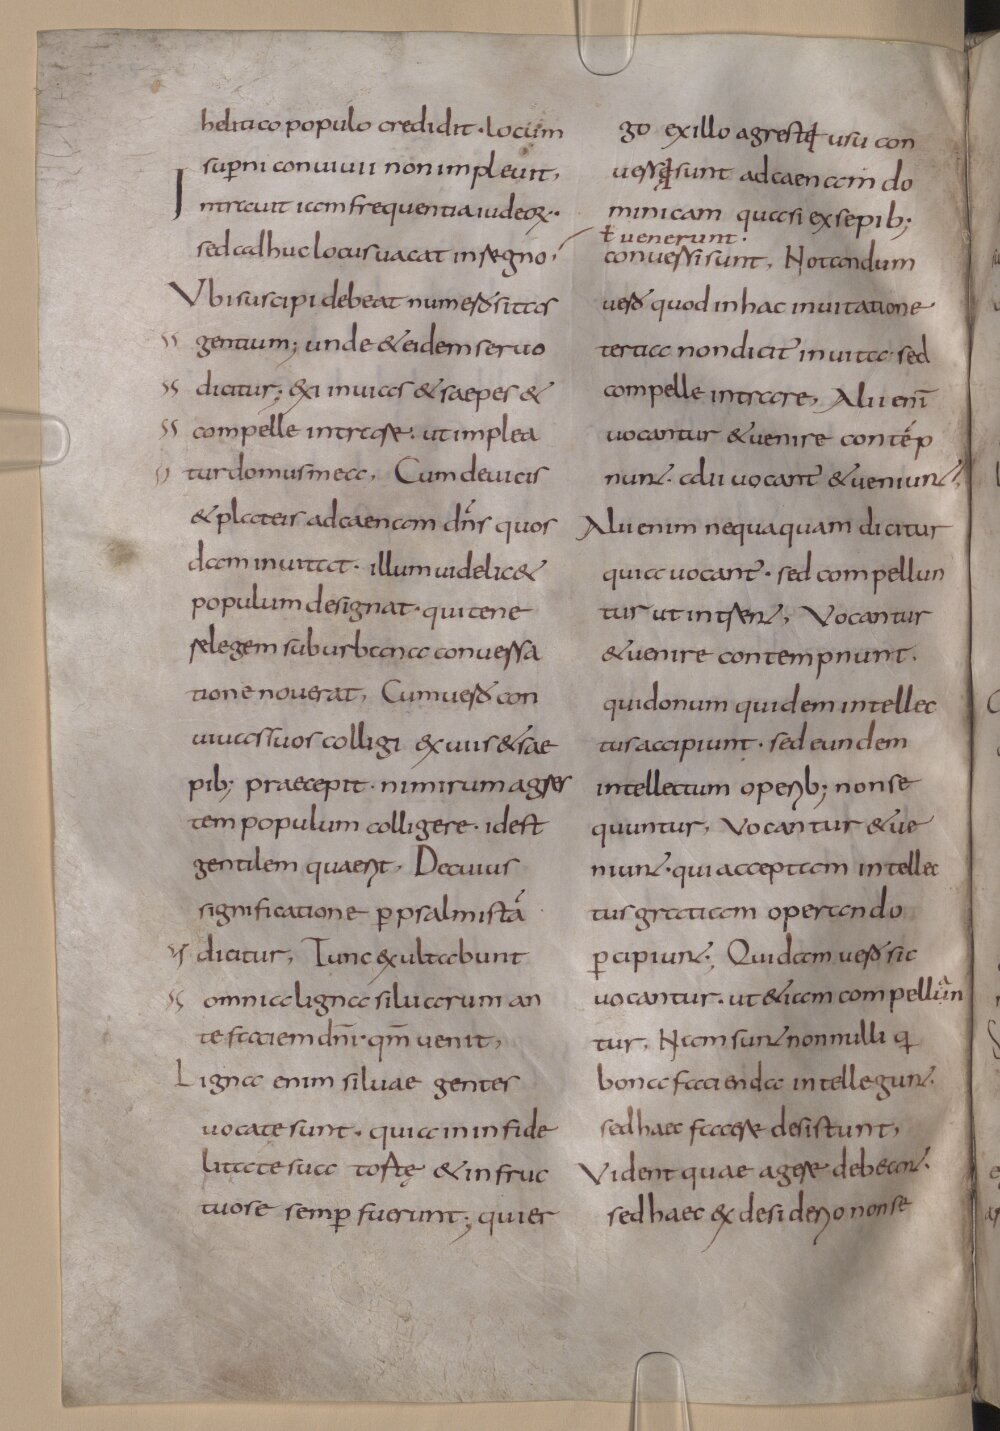 helitico populo credidit · locum
supni conuiuii non impleuit,
Intrauit iam frequentia iudeoꝝ ·
sed adhuc locus uacat in regno ·
Vbi suscipi debeat numerositas
gentium; unde & eidem seruo
dicitur; exi in uias & saepes &
compelle intrare · ut implea
tur domus mea, Cum de uicis
& plateis ad caenam dn̄s quos
dam inuitat · illum uidelic&
populum designat · qui tene
re legem sub urbana conuersa
tione nouerat, Cum uero con
uiuas suos colligi ex uiis & sae
pib; praecepit · nimirum agres
tem populum colligere · idest
gentilem quaerit, De cuius
significatione ꝑ psalmistā
dicitur, Tunc exultabunt
omnia ligna siluarum an
te faciem dn̄i · qm̄ uenit,
Ligna enim siluae gentes
uocate sunt · quia in infide
litate sua tortę & infruc
tuose semꝑ fuerunt; qui er
go ex illo agresti usu con
uersi sunt ad caenam do
minicam quasi ex sepib;
ł uenerunt ·
conuersi sunt, Notandum
uero quod in hac inuitatione
tertia non dicit inuita · sed
compelle intrare, Alii enī
uocantur & uenire contēp
nunt · alii uocant̄ & ueniunt,
Alii enim nequaquam dicitur
quia uocant̄ · sed compellun
tur ut intrent, Vocantur
& uenire contempnunt ·
qui donum quidem intellec
tus accipiunt · sed eundem
intellectum operib; non se
quuntur, Vocantur & ue
niunt · qui acceptam intellec
tus gratiam operando
ꝑcipiunt; Quidam uero sic
uocantur · ut &iam compellun
tur, Nam sunt nonnulli q
bona facienda intellegunt ·
sed haec facere desistunt,
Vident quae agere debeant ·
sed haec ex desiderio non se